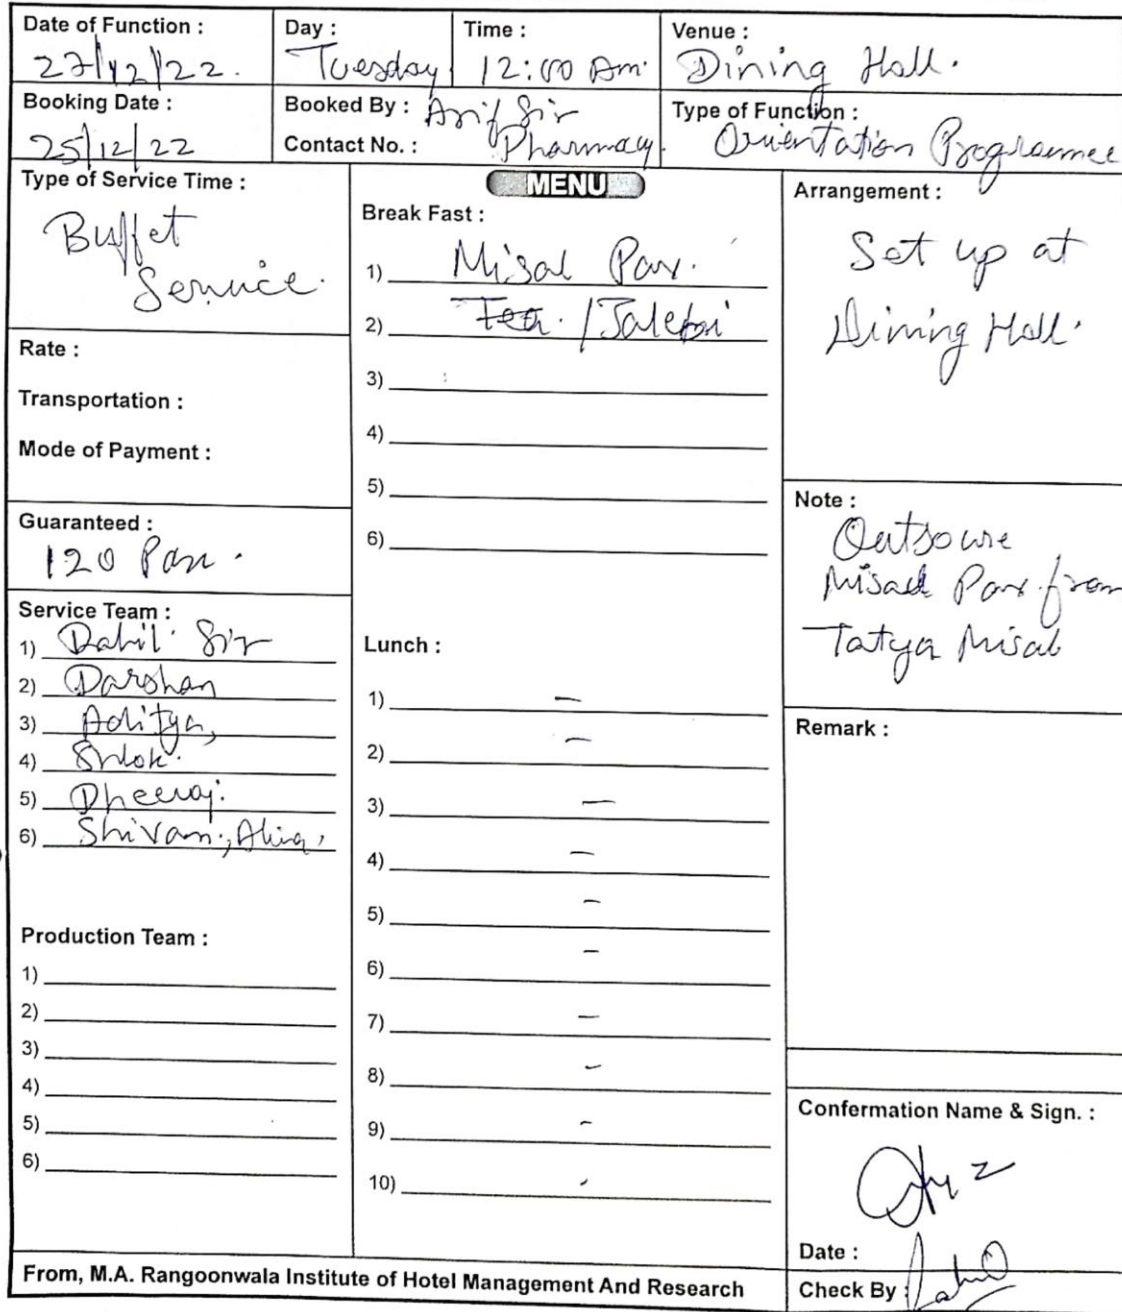 Date of Function :
27/12/22.
Day :
Tuesday
Time :
12:00 Am.
Venue :
Dining Hall.
Booking Date :
25/12/22
Booked By : Asif Sir
Pharmacy.
Contact No. :
Type of Function :
Orientation Programmee
Type of Service Time :
Buffet
Service.
Rate :
Transportation :
Mode of Payment :
Guaranteed :
120 Pax.
Service Team :
1) Rahil Sir
2) Darshan
3) Aditya,
4) Shlok.
5) Dheeraj.
6) Shivam.,
Production Team :
1)
2)
3)
4)
5)
6)
MENU
Break Fast :
1) Misal Pav.
2) Tea. / Jalebi
3)
4)
5)
6)
Lunch :
1) –
2) –
3) –
4) –
5) –
6) –
7) –
8) –
9) –
10) -
Arrangement :
Set up at
Dining Hall.
Note :
Outsoure
Misal Pav from
Tatya Misal
Remark :
Confermation Name & Sign. :
Date :
Check By :
From, M.A. Rangoonwala Institute of Hotel Management And Research